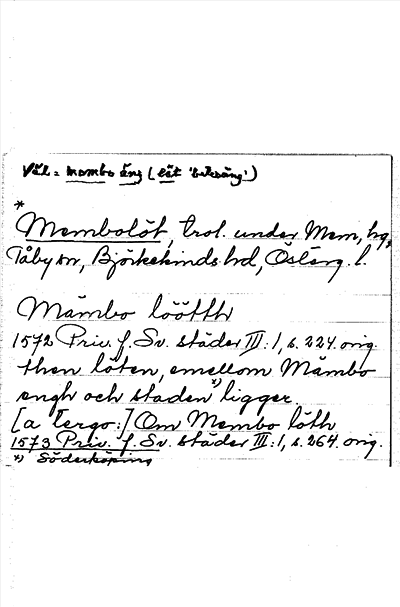 Väl = mambo äng (löt 'betesäng')
*
Membolöt, trol. under Mem, hg,
Tåby sn, Björkekinds hd, Österg. l.
Mämbo löötth
1572 Priv. f. Sv. städer III:1, s. 224. orig.
then löten, emellom Mämbo
engh och staden *) ligger.
[a tergo:] Om Membo löth
1573 Priv. f. Sv. städer III:1, s. 264. orig.
*) Söderköping